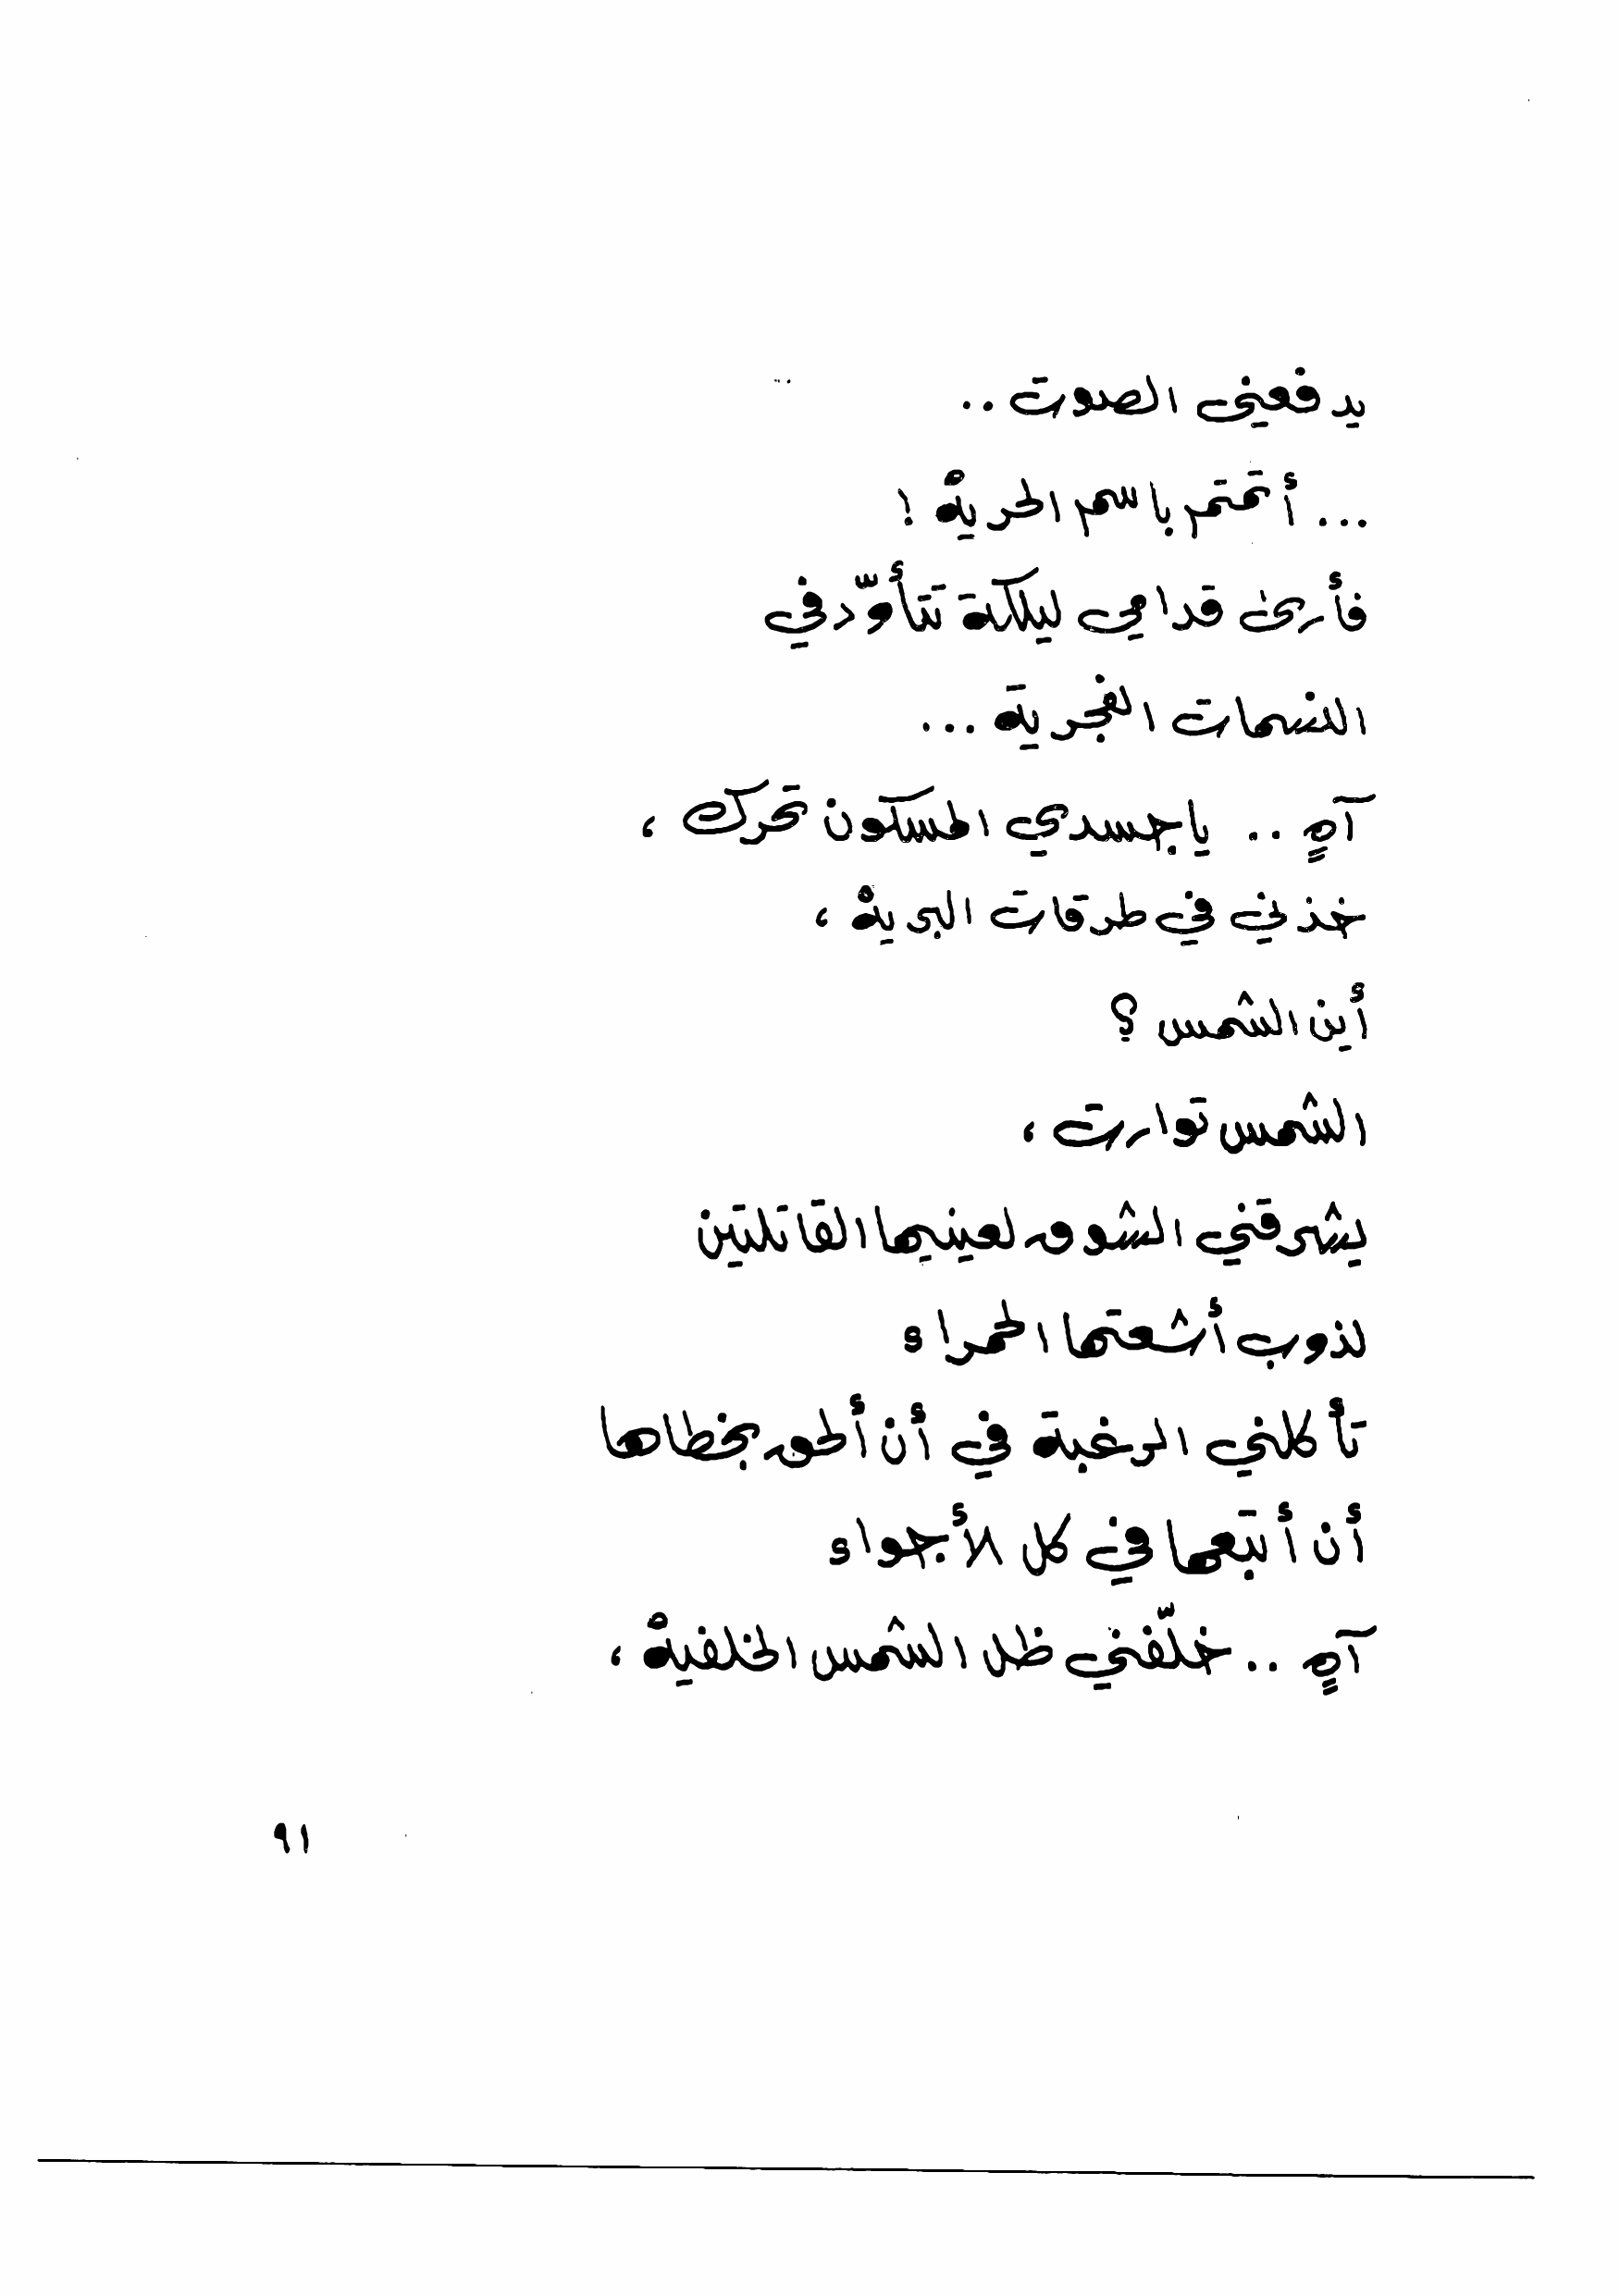 يدفعني الصوت ..
... أتمتم باسم الحريهْ !
فأرى قدامي ليلكة تتأوّد في
النسمات الفجرية ...
آهٍ .. يا جسدي المسكون تحرك ،
خذني في طرقات البريهْ ،
أين الشمس ؟
الشمس توارت ،
يشرقني الشوق لعينيها القاتلتين
لذوب أشعتها الحمراء
تأكلني الرغبة في أن ألحق بخطاها
أن أتبعها في كل الأجواء
آهٍ .. خلّفني ظل الشمس الخلفيهْ ،
٩١